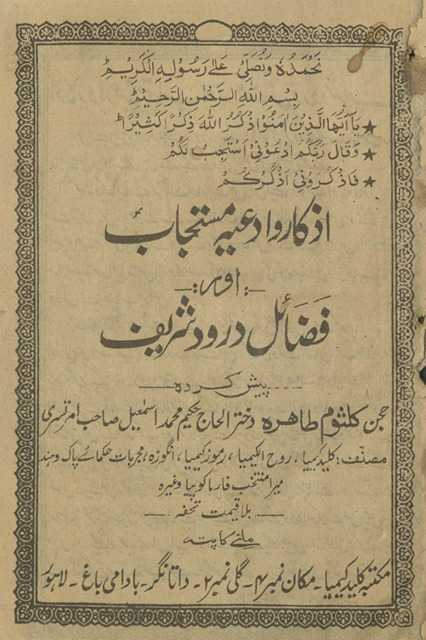 نَحْمَدُهٗ وَنُصَلِّیْ عَلٰے رَسُوْلِہِ الْکَرِیْمِ
بِسْمِ اللهِ الرَّحْمٰنِ الرَّحِیْمِ
★ یٰۤاَیُّهَا الَّذِیْنَ اٰمَنُوا اذْکُرُ اللهَ ذِکْرًا کَثِیْرًا
★ وَقَالَ رَبُّکُمُ ادْعُوْنِیْ اَسْتَجِبْ لَکُمْ
★ فَاذْکُرُوْنِیْ اَذْکُرْکُمْ
اذکار و ادعیہ مستجاب
اور
فضائل درود شریف
پیش کردہ
حجن کلثوم طاہرہ دختر الحاج حکیم محمد اسمٰعیل صاحب امرتسری
مصنف: کلید کیمیا، روح الکیمیا، رموز کیمیا، انگوزہ، مجربات حکمائے پاک و ہند
میرا منتخب فارماکوپیا وغیرہ
بلا قیمت تحفہ
ملنے کا پتہ
مکتبہ کلید کیمیا - مکان نمبر ۴ - گلی نمبر ۲ - داتا نگر - بادامی باغ - لاہور